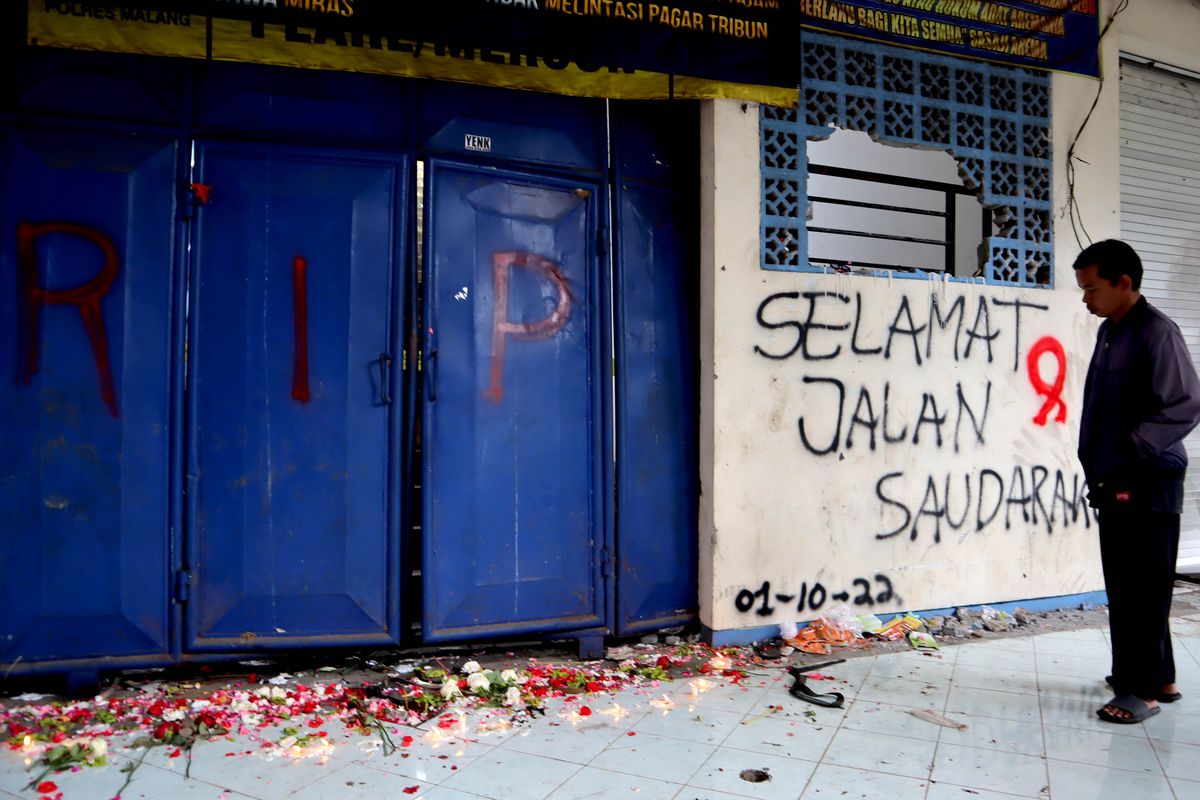 POLRES MALANG
MIRAS
MELINTASI PAGAR TRIBUN
BERLAKU BAGI KITA SEMUA" SASAJI AREMA
YENK
R I P
SELAMAT
JALAN
SAUDARAKU
01-10-22